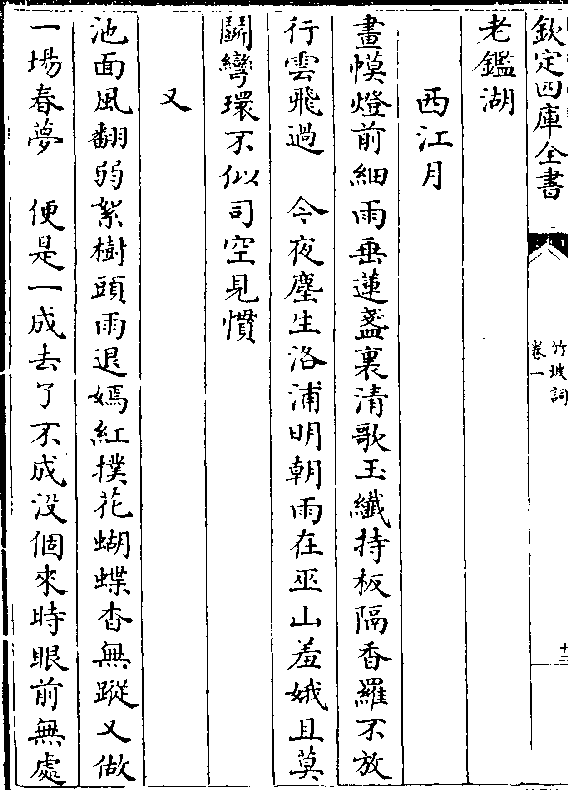 欽定四庫全書
竹坡詞
卷一
十三
老鑑湖
西江月
畫幙燈前細雨垂蓮盞裏清歌玉纖持板隔香羅不放
行雲飛過　今夜塵生洛浦明朝雨在巫山羞娥且莫
鬭彎環不似司空見慣
又
池面風翻弱絮樹頭雨退嫣紅撲花蝴蝶杳無蹤又做
一場春夢　便是一成去了不成没個來時眼前無處